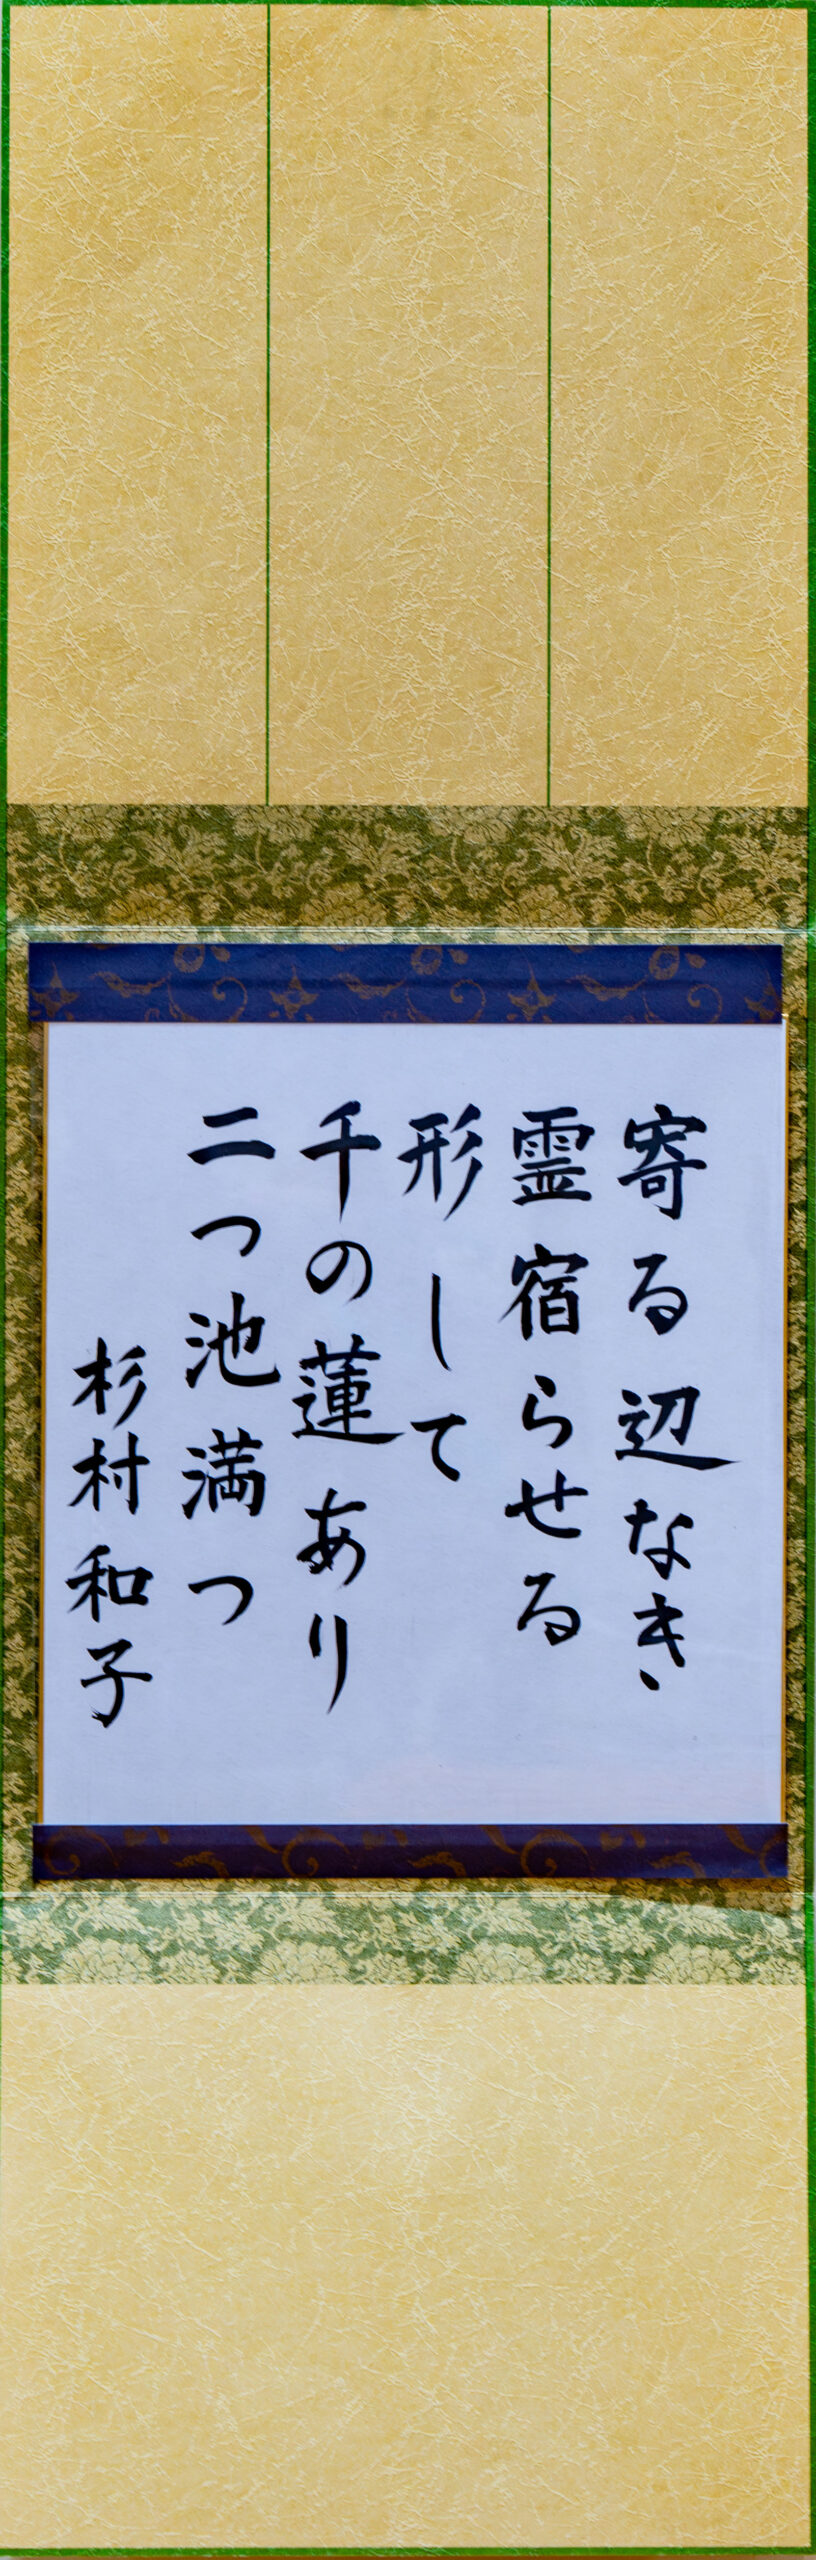 寄る辺なき
霊宿らせる
形して
千の蓮あり
二つ池満つ
杉村和子